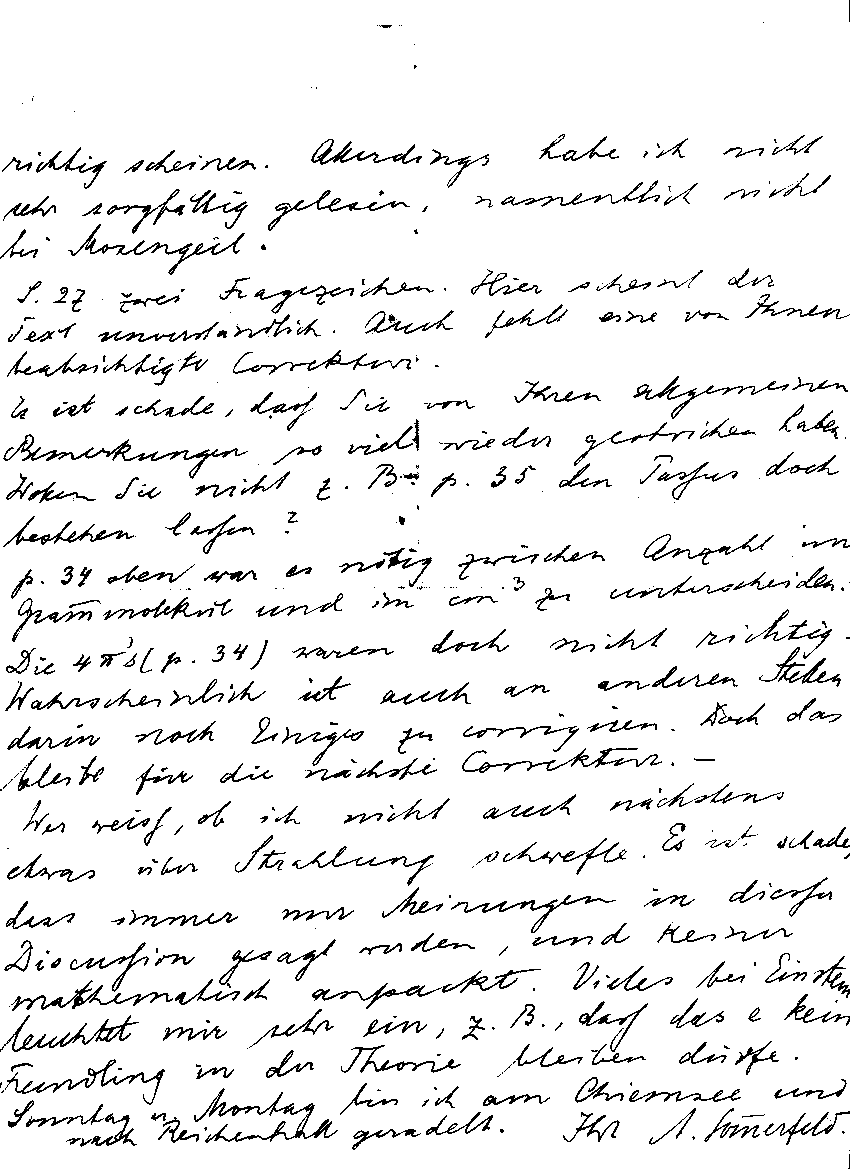 richtig scheinen. Allerdings habe ich nicht
sehr sorgfältig gelesen, namentlich nicht
bei Mosengeil.
S. 27 zwei Fragezeichen. Hier scheint der
Text unverständlich. Auch fehlt eine von Ihnen
beabsichtigte Correktur.
Es ist schade, dass Sie von Ihren allgemeinen
Bemerkungen so viel wieder gestrichen haben.
Wollen Sie nicht z. B. p. 35 den Passus doch
bestehen lassen?
p. 34 oben war es nötig zwischen Anzahl im
Gram̅molekül und im cm³ zu unterscheiden.
Die 4π's (p. 34) waren doch nicht richtig.
Wahrscheinlich ist auch an anderen Stellen
darin noch Einiges zu corrigiren. Doch das
bleibe für die nächste Correktur. —
Wer weiss, ob ich nicht auch nächstens
etwas über Strahlung schwefle. Es ist schade,
dass immer nur Meinungen in dieser
Discussion gesagt werden, und keiner
mathematisch anpackt. Vieles bei Einstein
leuchtet mir sehr ein, z. B., dass das e kein
Fremdling in der Theorie bleiben dürfe.
Sonntag u. Montag bin ich am Chiemsee und
nach Reichenhall geradelt. Ihr A. Som̅erfeld.